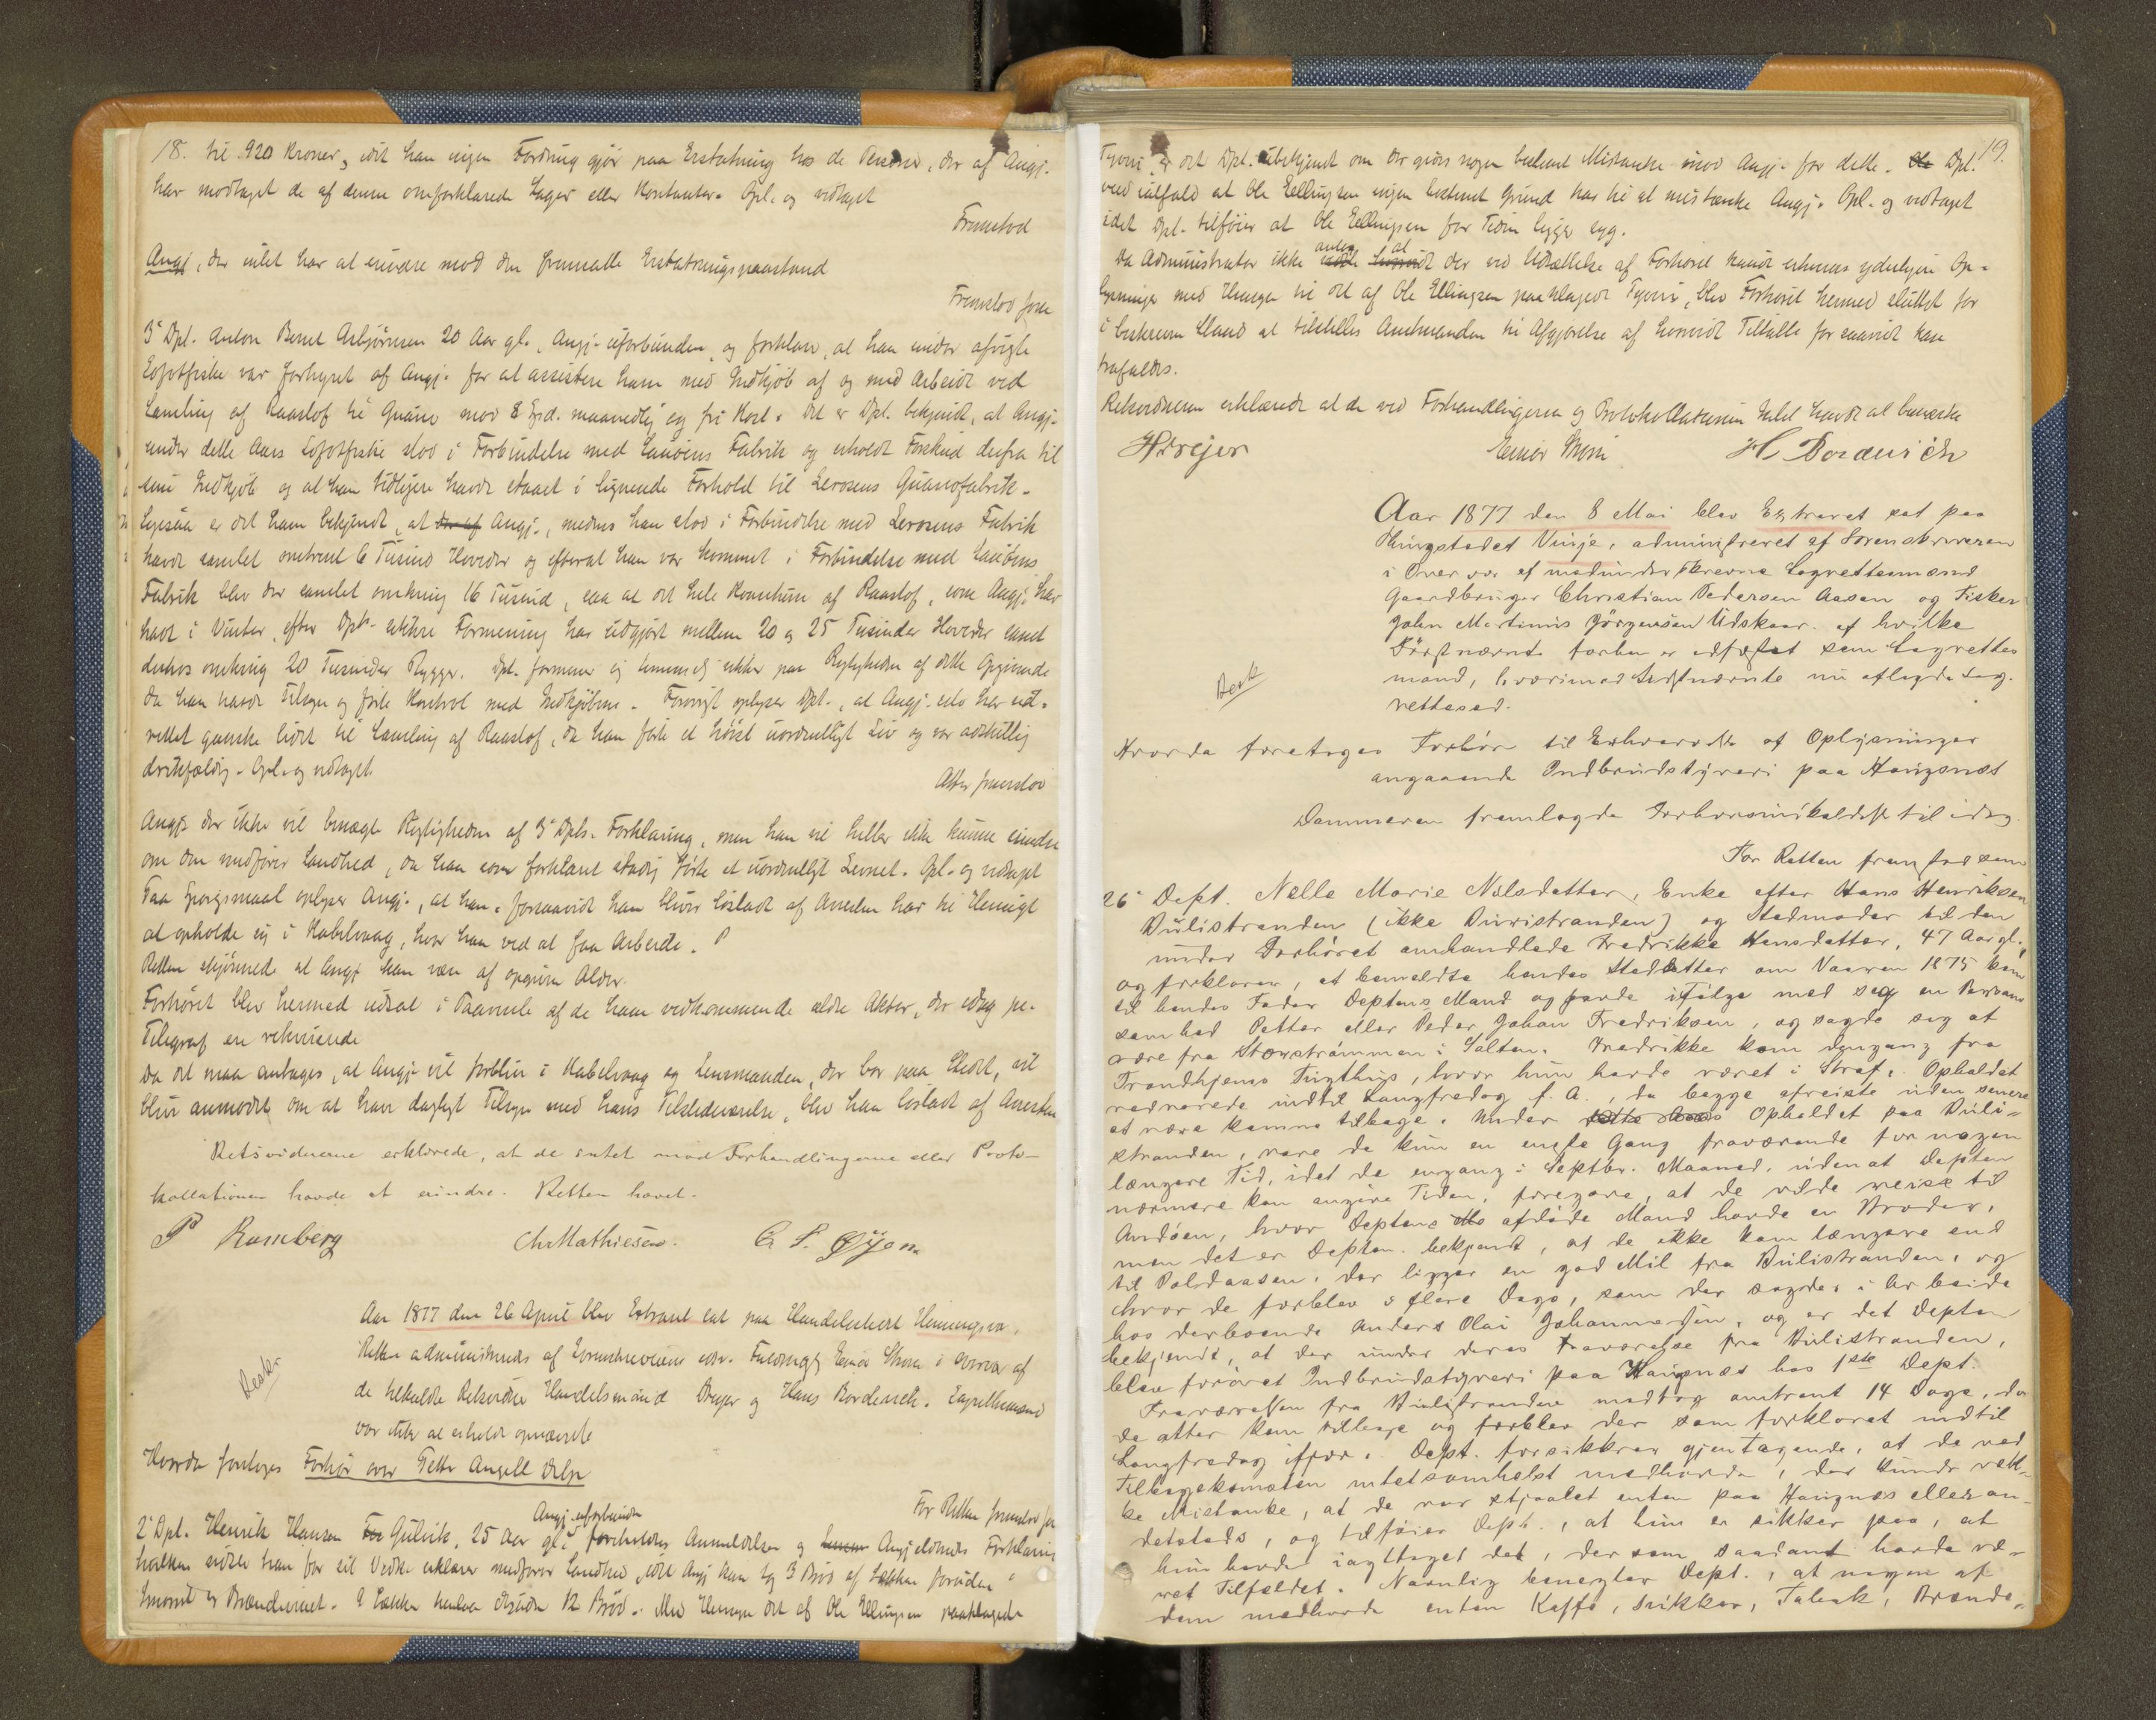 18. til 920 Kroner, idet han ingen Fordring gjør paa Erstatning hos de Personer, der af Angj.
har modtaget de af denne omforklarede Sager eller Kontanter. Opl. og vedtaget
Fremstod
Angj., der intet har at erindre mod den fremsatte Erstatningspaastand
Fremstod som
3' Dpt. Anton Bernt Asbjørnsen 20 Aar gl., Angj. uforbunden, og forklarer, at han under afvigte
Lofotfiske var forhyret af Angj. for at assistere ham med Indkjøb af og med Arbeidet ved
Samling af Raastof til Guano mod 8 Spd. maanedlig og fri Kost. Det er Dpt. bekjendt, at Angj.
under dette Aars Lofotfiske stod i Forbindelse med Fabrik og erholdt Forskud derfra til
sine Indkjøb og at han tidligere havde staaet i lignende Forhold til Lerosens Guanofabrik.
Ligesaa er det ham bekjendt, at der af Angj., medens han stod i Forbindelse med Lerosens Fabrik
havde samlet omtrent 6 Tusind Hoveder og efterat han var kommet i Forbindelse med
Fabrik blev der samlet omkring 16 Tusind, saa at det hele Kvantum af Raastof, som Angj. har
havt i Vinter, efter Dpts. sikkre Formening har udgjort mellem 20 og 25 Tusinder Hoveder samt
derhos omkring 20 Tusinder Rygge. Dpt. formener sig temmelig sikker paa Rigtigheden af dette Opgivende
da han havde Tilsyn og førte Kontrol med Indkjøbene. Forøvrigt oplyser Dpt., at Angj. selv har ud-
rettet ganske lidet til Samling af Raastof, da han førte et høist uordentligt Liv og var adskillig
drikfældig. Opl. og vedtaget.
Atter fremstod
Angj. der ikke vil benægte Rigtigheden af 3' Dpts. Forklaring, men han vil heller ikke kunne erindre
om den medfører Sandhed, da han som forklaret stadig førte et uordentligt Levnet. Opl. og vedtaget
Paa Spørgsmaal oplyser Angj., at han, forsaavidt han bliver løsladt af Arresten har til Hensigt
at opholde sig i Kabelvaag, hvor han ved at faa Arbeide.
Retten skjønnede at Angj. kan være af opgiven Alder.
Forhøret blev hermed udsat i Paavente af de ham vedkommende ældre Akter, der idag pr.
Telegraf ere rekvirerede
Da det maa antages, at Angj. vil forblive i Kabelvaag og Lensmanden, der bor paa Stedet, vil
blive anmodet om at have dagligt Tilsyn med hans Tilstedeværelse, blev han løsladt af Arresten
Retsvidnerne erklærede, at de intet mod Forhandlingerne eller Proto-
kollationen havde at erindre. Retten hævet.
P Ramberg
Chr Mathiesen.
Aar 1877 den 26 April blev Extraret sat paa Handelsstedet Henningsvær.
Retten administreredes af Sorenskriverens edsv. Fuldmægtig Einar Thom i Overvær af
de tilkaldte Retsvidner Handelsmænd Dreyer og Hans Bordevich. Lagrettesmænd
var ikke at erholde opnævnte
Besk
Hvorda foretoges Forhør over Petter Angell Delp
For Retten fremstod som
Angj. uforbunden
2' Dpt. Henrik Hansen Gulvik, 25 Aar gl. foreholdtes Anmeldelsen og Angjeldendes Forklaring
hvilken sidste han for sit Vedkommende erklærer medfører Sandhed, idet Angj. kun tog 3 Brød af Sækken foruden
Smørret og Brændevinet. I Sækken henlaa desuden 12 Brød. Med Hensyn det af Ole Ellingsen paaklagede
19.
Tyveri er det Dpt. ubekjendt om der gives nogen bestemt Mistanke mod Angj. for dette. Dpt.
ved ialfald at Ole Ellingsen ingen bestemt Grund har til at mistænke Angj. Opl. og vedtaget
idet Dpt. tilføier at Ole Ellingsen for Tiden ligger syg.
Da Administrator ikke antog at der ved Udsættelse af Forhøret kunde erhverves yderligere Op-
lysninger med Hensyn til det af Ole Ellingsen paaklagede Tyveri, blev Forhøret hermed sluttet for
i beskreven Stand at tilstilles Amtmanden til Afgjørelse af hvorvidt Tiltale for saavidt kan
frafaldes.
Retsvidnerne erklærede at de ved Forhandlingerne og Protokollationen Intet havde at bemærke
HDreyer
Einar Thom
H Bordevich
Aar 1877 den 8 Mai blev Extraret sat paa
Thingstedet Vinje, administreret af Sorenskriveren
i Overvær af medunderskrevne Lagrettesmænd
Gaardbruger Christian Pedersen Aasen og Fisker
Johan Martinus Jørgensen Udskaar. af hvilke
Førstnævnte forhen er edfæstet som Lagrettes
mand, hvorimod Sidstnævnte nu aflagde Lag-
rettesed.
Besk
Hvorda foretoges Forhør til Erhvervelse af Oplysninger
angaaende Indbrudstyveri paa Haugsnes
Dommeren fremlagde Forhørsindkaldelse til idag.
For Retten fremstod som
26' Dept. Nelle Marie Nilsdatter, Enke efter Hans Henriksen
Bulistranden (ikke Buristranden) og Stedmoder til den
under Forhøret omhandlede Fredrikke Hansdatter, 47 Aar gl.
og forklarer, at bemeldte hendes Steddatter om Vaaren 1875 kom
til hendes Fader Deptens Mand og havde ifølge med sig en Person
som hed Petter eller Peder Johan Fredriksen, og sagde sig at
være fra Storstrømmen i Salten. Fredrikke kom dengang fra
Trondhjems Tugthus, hvor hun havde været i Straf. Opholdet
vedvarede indtil Langfredag f. A., da begge afreiste uden senere
at være komne tilbage. Under dette deres Opholdet paa Buli-
stranden, vare de kun en enkelt Gang fraværende for nogen
længere Tid, idet de engang i Septbr. Maaned, uden at Depten
nærmere kan angive Tiden, foregave, at de vilde reise til
Andøen, hvor Deptens afdøde Mand havde en Broder,
men det er Depten bekjendt, at de ikke kom længere end
til Poldaasen, der ligger en god Mil fra Bulistranden, og
hvor de forblev i flere Dage, som der sagdes i Arbeide
hos derboende Anders Olai Johannessen, og er det Depten
bekjendt, at der under deres Fraværelse fra Bulistranden,
blev forøvet Indbrudstyveri paa Haugsnes hos 1ste Dept.
Fraværelsen fra Bulistranden medtog omtrent 14 Dage, da
de atter kom tilbage og forblev der som forklaret indtil
Langfredag ifjor. Dept. forsikkrer gjentagende, at de ved
Tilbagekomsten intetsomhelst medhavde, der kunde væk-
ke Mistanke, at de var stjaalet enten paa Haugnes eller an-
detsteds, og tilføier Dept., at hun er sikker paa, at
hun havde iagttaget det, dersom saadant havde væ-
ret Tilfældet. Navnlig benegter Dept., at nogen af
dem medhavde enten Kaffe, Sukker, Tabak, Brænde-